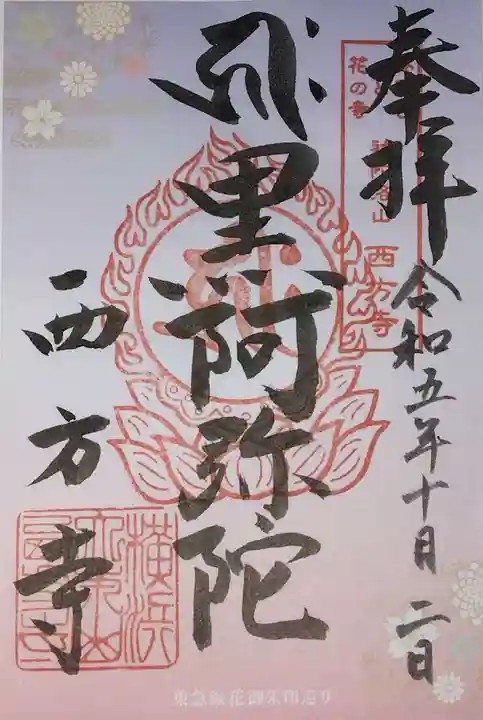 奉拝
令和五年十月二日
花の寺
西方寺
黒阿弥陀
西方寺
横浜
東急線花御朱印巡り